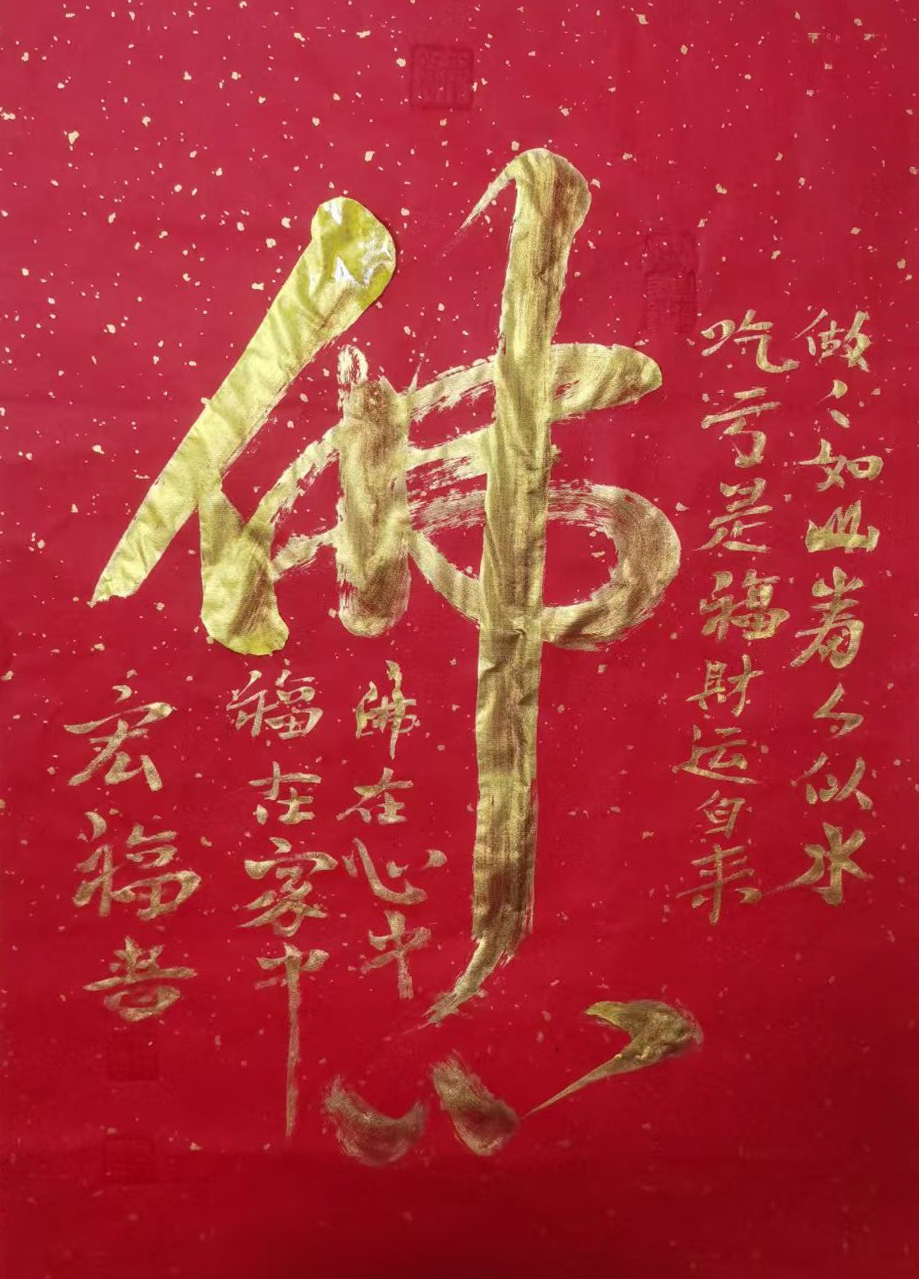 做人如山看人似水
吃亏是福財运自来
佛心
佛在心中
福在家中
宏福书